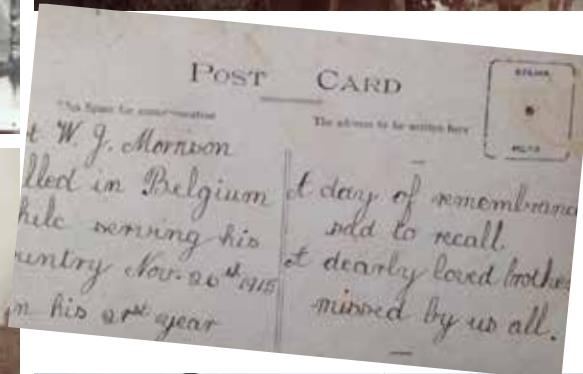 POST CARD
This Space for communication
The address to be written here
t W. J. Morrison
lled in Belgium
hile serving his
untry Nov. 20th 1915
n his 21st year
A day of remembranc
sad to recall.
A dearly loved brothe
missed by us all.